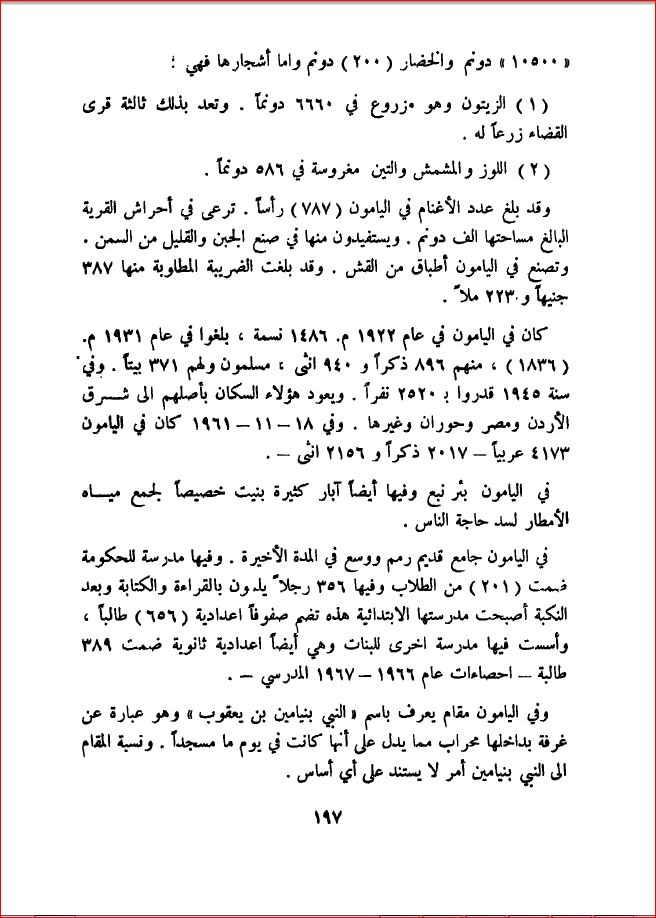 « ١٠٥٠٠ » دونم والخضار ( ٢٠٠ ) دونم واما أشجارها فهي :
( ١ ) الزيتون وهو مزروع في ٦٦٦٠ دونماً . وتعد بذلك ثالثة قرى
القضاء زرعاً له .
( ٢ ) اللوز والمشمش والتين مغروسة في ٥٨٦ دونماً .
وقد بلغ عدد الأغنام في اليامون ( ٧٨٧ ) رأساً . ترعى في أحراش القرية
البالغ مساحتها الف دونم . ويستفيدون منها في صنع الجبن والقليل من السمن .
وتصنع في اليامون أطباق من القش . وقد بلغت الضريبة المطلوبة منها ٣٨٧
جنيهاً و ٢٢٣ ملاً .
كان في اليامون في عام ١٩٢٢ م. ١٤٨٦ نسمة ، بلغوا في عام ١٩٣١ م.
( ١٨٣٦ ) ، منهم ٨٩٦ ذكراً و ٩٤٠ انثى ، مسلمون ولهم ٣٧١ بيتاً . وفي
سنة ١٩٤٥ قدروا بـ ٢٥٢٠ نفراً . ويعود هؤلاء السكان بأصلهم الى شـــرق
الأردن ومصر وحوران وغيرها . وفي ١٨ – ١١ – ١٩٦١ كان في اليامون
٤١٧٣ عربياً – ٢٠١٧ ذكراً و ٢١٥٦ انثى – .
في اليامون بئر نبع وفيها أيضاً آبار كثيرة بنيت خصيصاً لجمع ميـــاه
الأمطار لسد حاجة الناس .
في اليامون جامع قديم رمم ووسع في المدة الأخيرة . وفيها مدرسة للحكومة
ضمت ( ٢٠١ ) من الطلاب وفيها ٣٥٦ رجلاً يلمون بالقراءة والكتابة وبعد
النكبة أصبحت مدرستها الابتدائية هذه تضم صفوفاً اعدادية ( ٦٥٦ ) طالباً ،
وأسست فيها مدرسة اخرى للبنات وهي أيضاً اعدادية ثانوية ضمت ٣٨٩
طالبة – احصاءات عام ١٩٦٦ – ١٩٦٧ المدرسي – .
وفي اليامون مقام يعرف باسم « النبي بنيامين بن يعقوب » وهو عبارة عن
غرفة بداخلها محراب مما يدل على أنها كانت في يوم ما مسجداً . ونسبة المقام
الى النبي بنيامين أمر لا يستند على أي أساس .
١٩٧